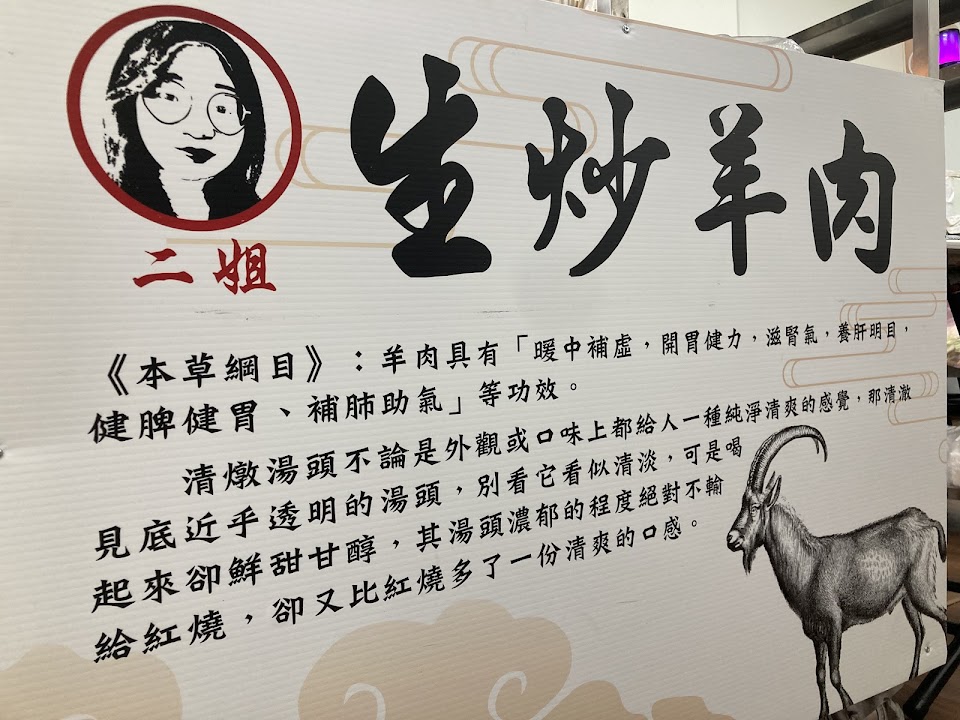 生炒羊肉
二姐
《本草綱目》：羊肉具有「暖中補虛，開胃健力，滋腎氣，養肝明目，
健脾健胃、補肺助氣」等功效。
清燉湯頭不論是外觀或口味上都給人一種純淨清爽的感覺，那清澈
見底近乎透明的湯頭，別看它看似清淡，可是喝
起來卻鮮甜甘醇，其湯頭濃郁的程度絕對不輸
給紅燒，卻又比紅燒多了一份清爽的口感。